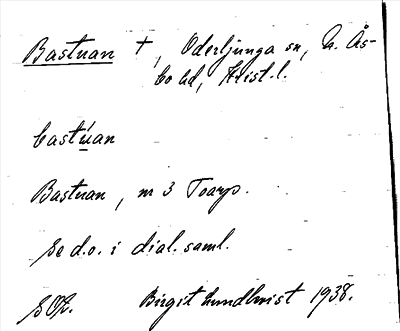 Bastuan †, Oderljunga sn, N. Ås-
bo hd, Krist.l.
bastúan
Bastuan, nr 3 Toarp.
Se d.o. i dial.saml.
SOR. Birgit Lundkvist 1938.